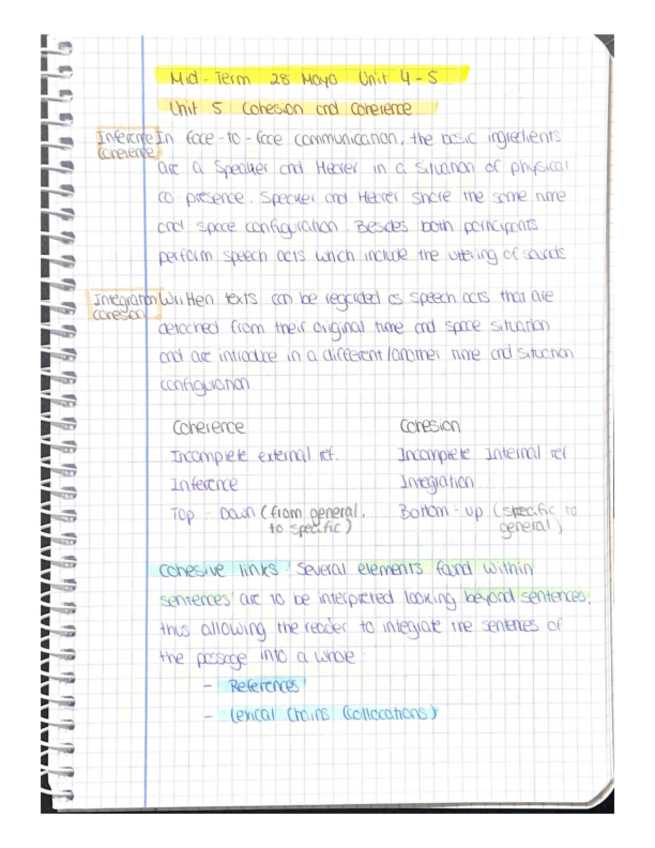 Mid-Term 28 Mayo Unit 4-5
Unit 5 Cohesion and coherence
Inference In face-to-face communication, the basic ingredients
Coherence are a Speaker and Hearer in a situation of physical
co presence. Speaker and Hearer share the same time
and space configuration. Besides both participants
perform speech acts which include the uttering of sounds
Integration Written texts can be regarded as speech acts that are
cohesion detached from their original time and space situation
and are introduce in a different/another time and situation
configuration
Coherence Cohesion
Incomplete external ref. Incomplete Internal ref
Inference Integration
Top-Down (from general, Bottom-up (specific to
to specific) general)
cohesive links: Several elements found within
sentences are to be interpreted looking beyond sentences,
thus allowing the reader to integrate the sentences of
the passage into a whole:
- References
- Lexical Chains (collocations)